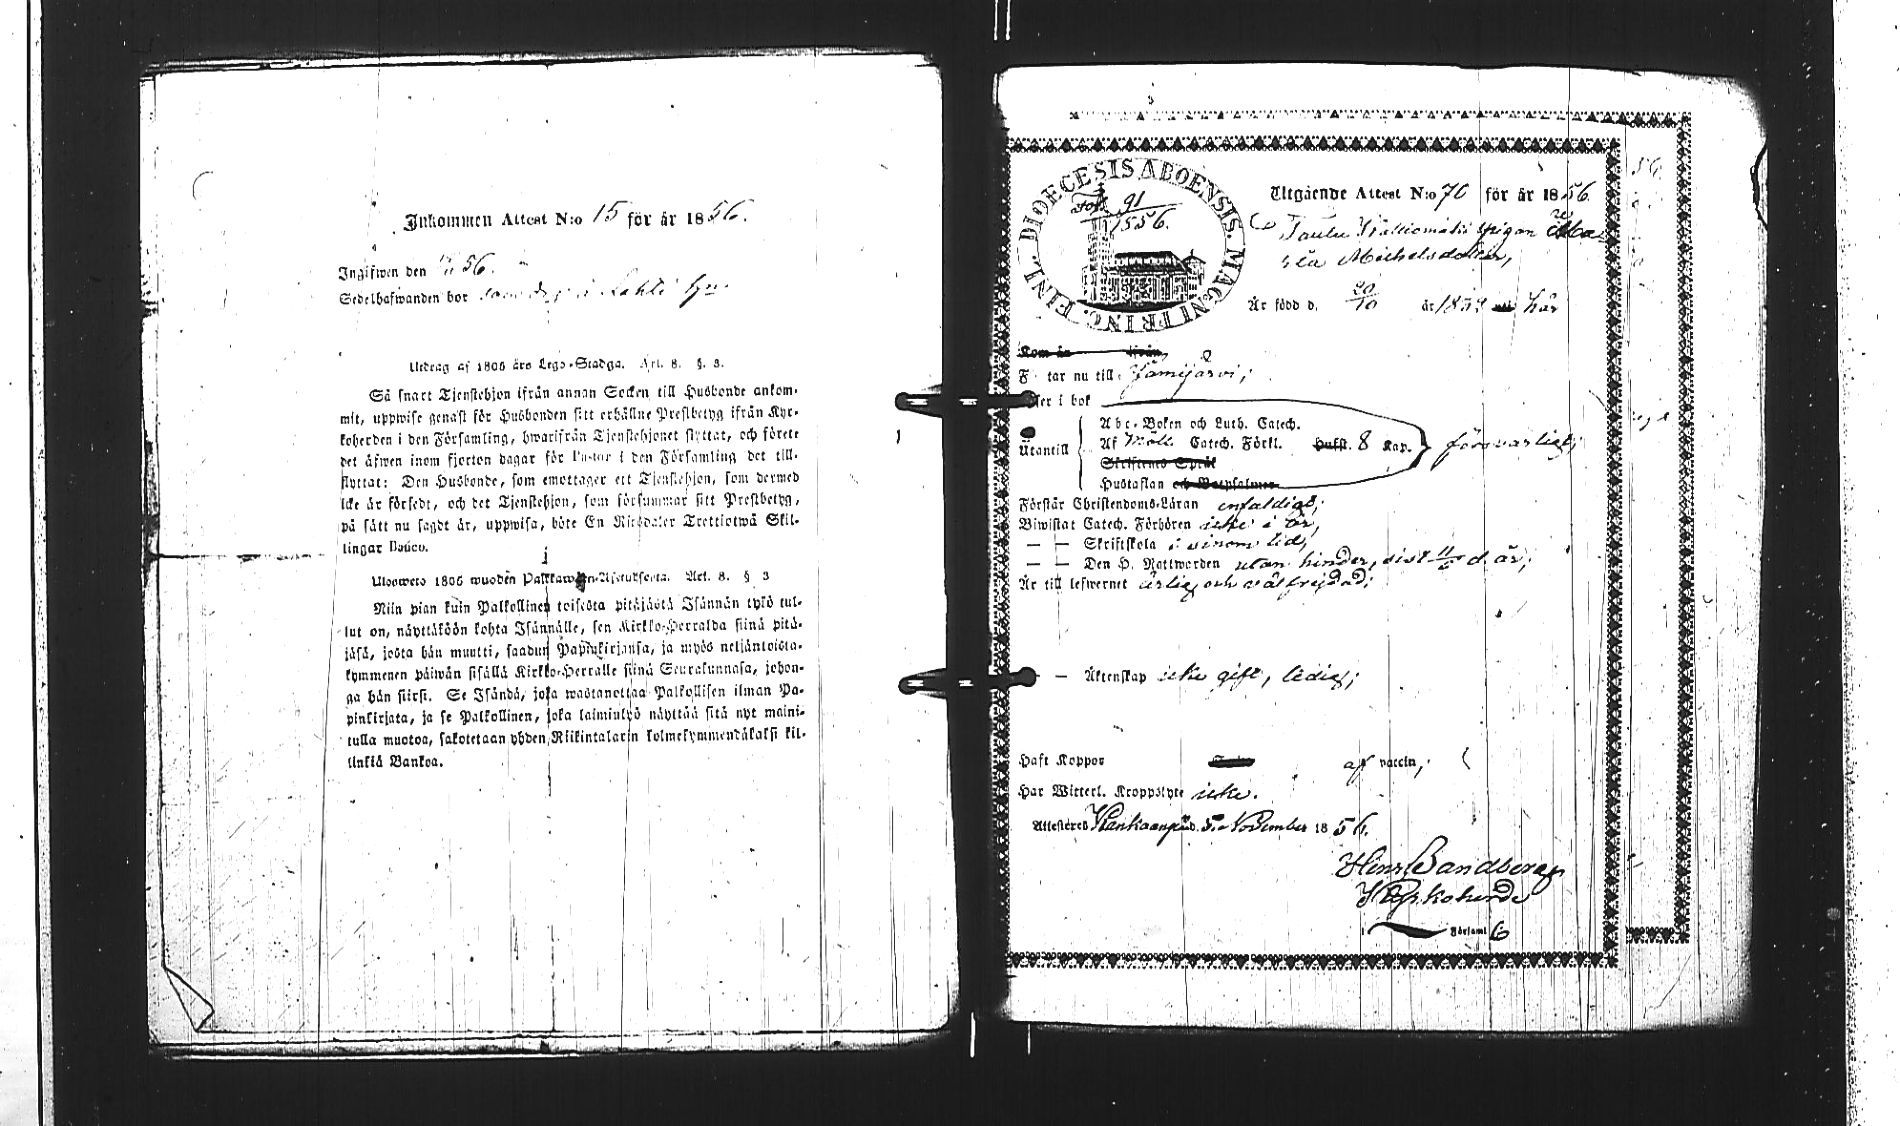 Inkommen Attest N:o 15 för år 1856.
Ingifwen den 56.
Sedelhafwanden bor i Lahti
Utdrag af 1805 års Lego-Stadga. Art. 8. §. 3.
Så snart Tjenstehjon ifrån annan Socken till Husbonde ankom-
mit, uppwise genast för Husbonden sitt erhållne Prestbetyg ifrån Kyr-
koherden i den Församling, hwarifrån Tjenstehjonet flyttat, och förete
det äfwen inom fjorton dagar för Pastor i den Församling det till-
flyttat: Den Husbonde, som emottager ett Tjenstehjon, som dermed
icke är försedt, och det Tjenstehjon, som försummar sitt Prestbetyg,
på sätt nu sagdt är, uppwisa, böte En Riksdaler Trettiotwå Skil-
lingar Banco.
Ulosweto 1805 wuoden Palkkawäen-Asetuksesta. Art. 8. § 3
Niin pian kuin Palkollinen toisesta pitäjästä Isännän työö tul-
lut on, näyttäköön kohta Isännälle, sen Kirkko-Herralda siinä pitä-
jäsä, josta hän muutti, saadun Papinkirjansa, ja myös neljäntoista-
kymmenen päiwän sisällä Kirkko-Herralle siinä Seurakunnasa, johon-
ga hän siirsi. Se Isändä, joka wastanottaa Palkollisen ilman Pa-
pinkirjata, ja se Palkollinen, joka laiminlyö näyttää sitä nyt maini-
tulla muotoa, sakotetaan yhden Riikintalarin kolmekymmendäkaksi kil-
linkiä Bankoa.
DIOECESIS ABOENSIS. MAGNI PRINC. FINL.
Fol. 91
1556.
Utgående Attest N:o 70 för år 1856.
Pigan
Michelsdotter,
Är född d. 20/10 år 18 här
Kom år ifrån
F tar nu till Jämijärvi;
ser i bok
Utantill
Abc-Boken och Luth. Catech.
Af Möll. Catech. Förkl. Hufst. 8 Kap. försvarligt;
Skriftenes Språk
Hustaflan och Botpsalmer
Förstår Christendoms-Läran enfaldigt;
Biwistat Catech. Förhören icke i år,
— — Skriftskola i sinom tid,
— — Den H. Nattwarden utan hinder, sist 11/5 d. år;
Är till lefwernet ärlig och välfrejdad;
— Äktenskap icke gift, ledig;
Haft Koppor af vaccin;
Har Witterl. Kroppslyte icke.
Attesteres Kankaanpää d. 5 November 1856.
Henr. Sandberg
Kyrkoherde
i Församl.